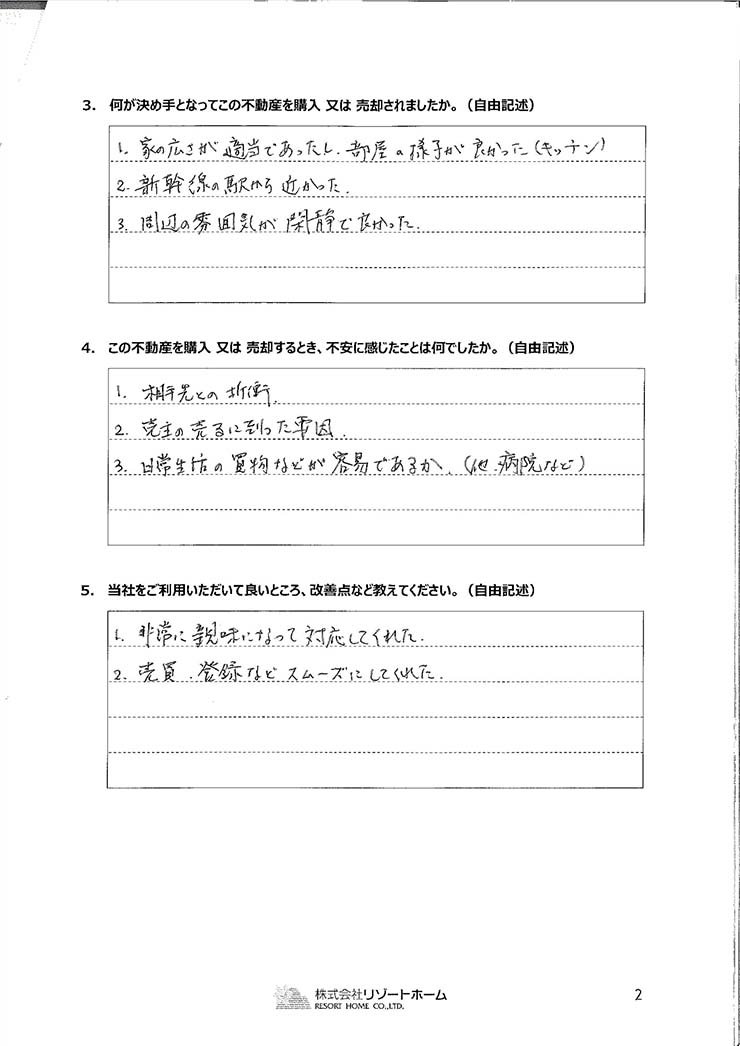 3. 何が決め手となってこの不動産を購入 又は 売却されましたか。（自由記述）
1. 家の広さが適当であったし、部屋の様子が良かった（キッチン）
2. 新幹線の駅から近かった.
3. 周辺の雰囲気が閑静で良かった.
4. この不動産を購入 又は 売却するとき、不安に感じたことは何でしたか。（自由記述）
1. 相手先との折衝.
2. 売主の売るに到った要因.
3. 日常生活の買物などが容易であるか.（他.病院など）
5. 当社をご利用いただいて良いところ、改善点など教えてください。（自由記述）
1. 非常に親味になって対応してくれた.
2. 売買.登録などスムーズにしてくれた.
株式会社リゾートホーム
RESORT HOME CO.,LTD.
2